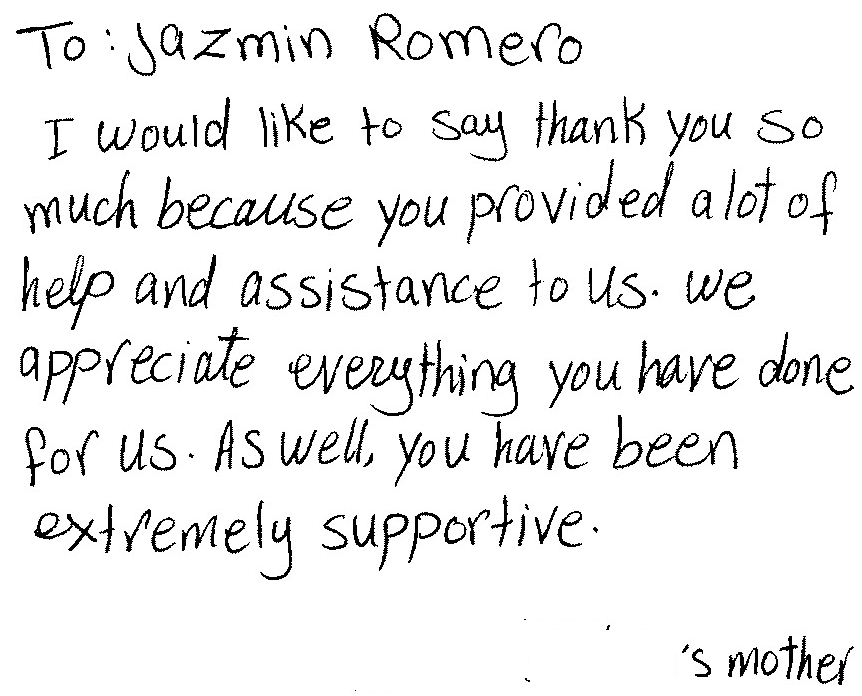 To: Jazmin Romero
I would like to say thank you so
much because you provided a lot of
help and assistance to us. we
appreciate everything you have done
for us. As well, you have been
extremely supportive.
's mother